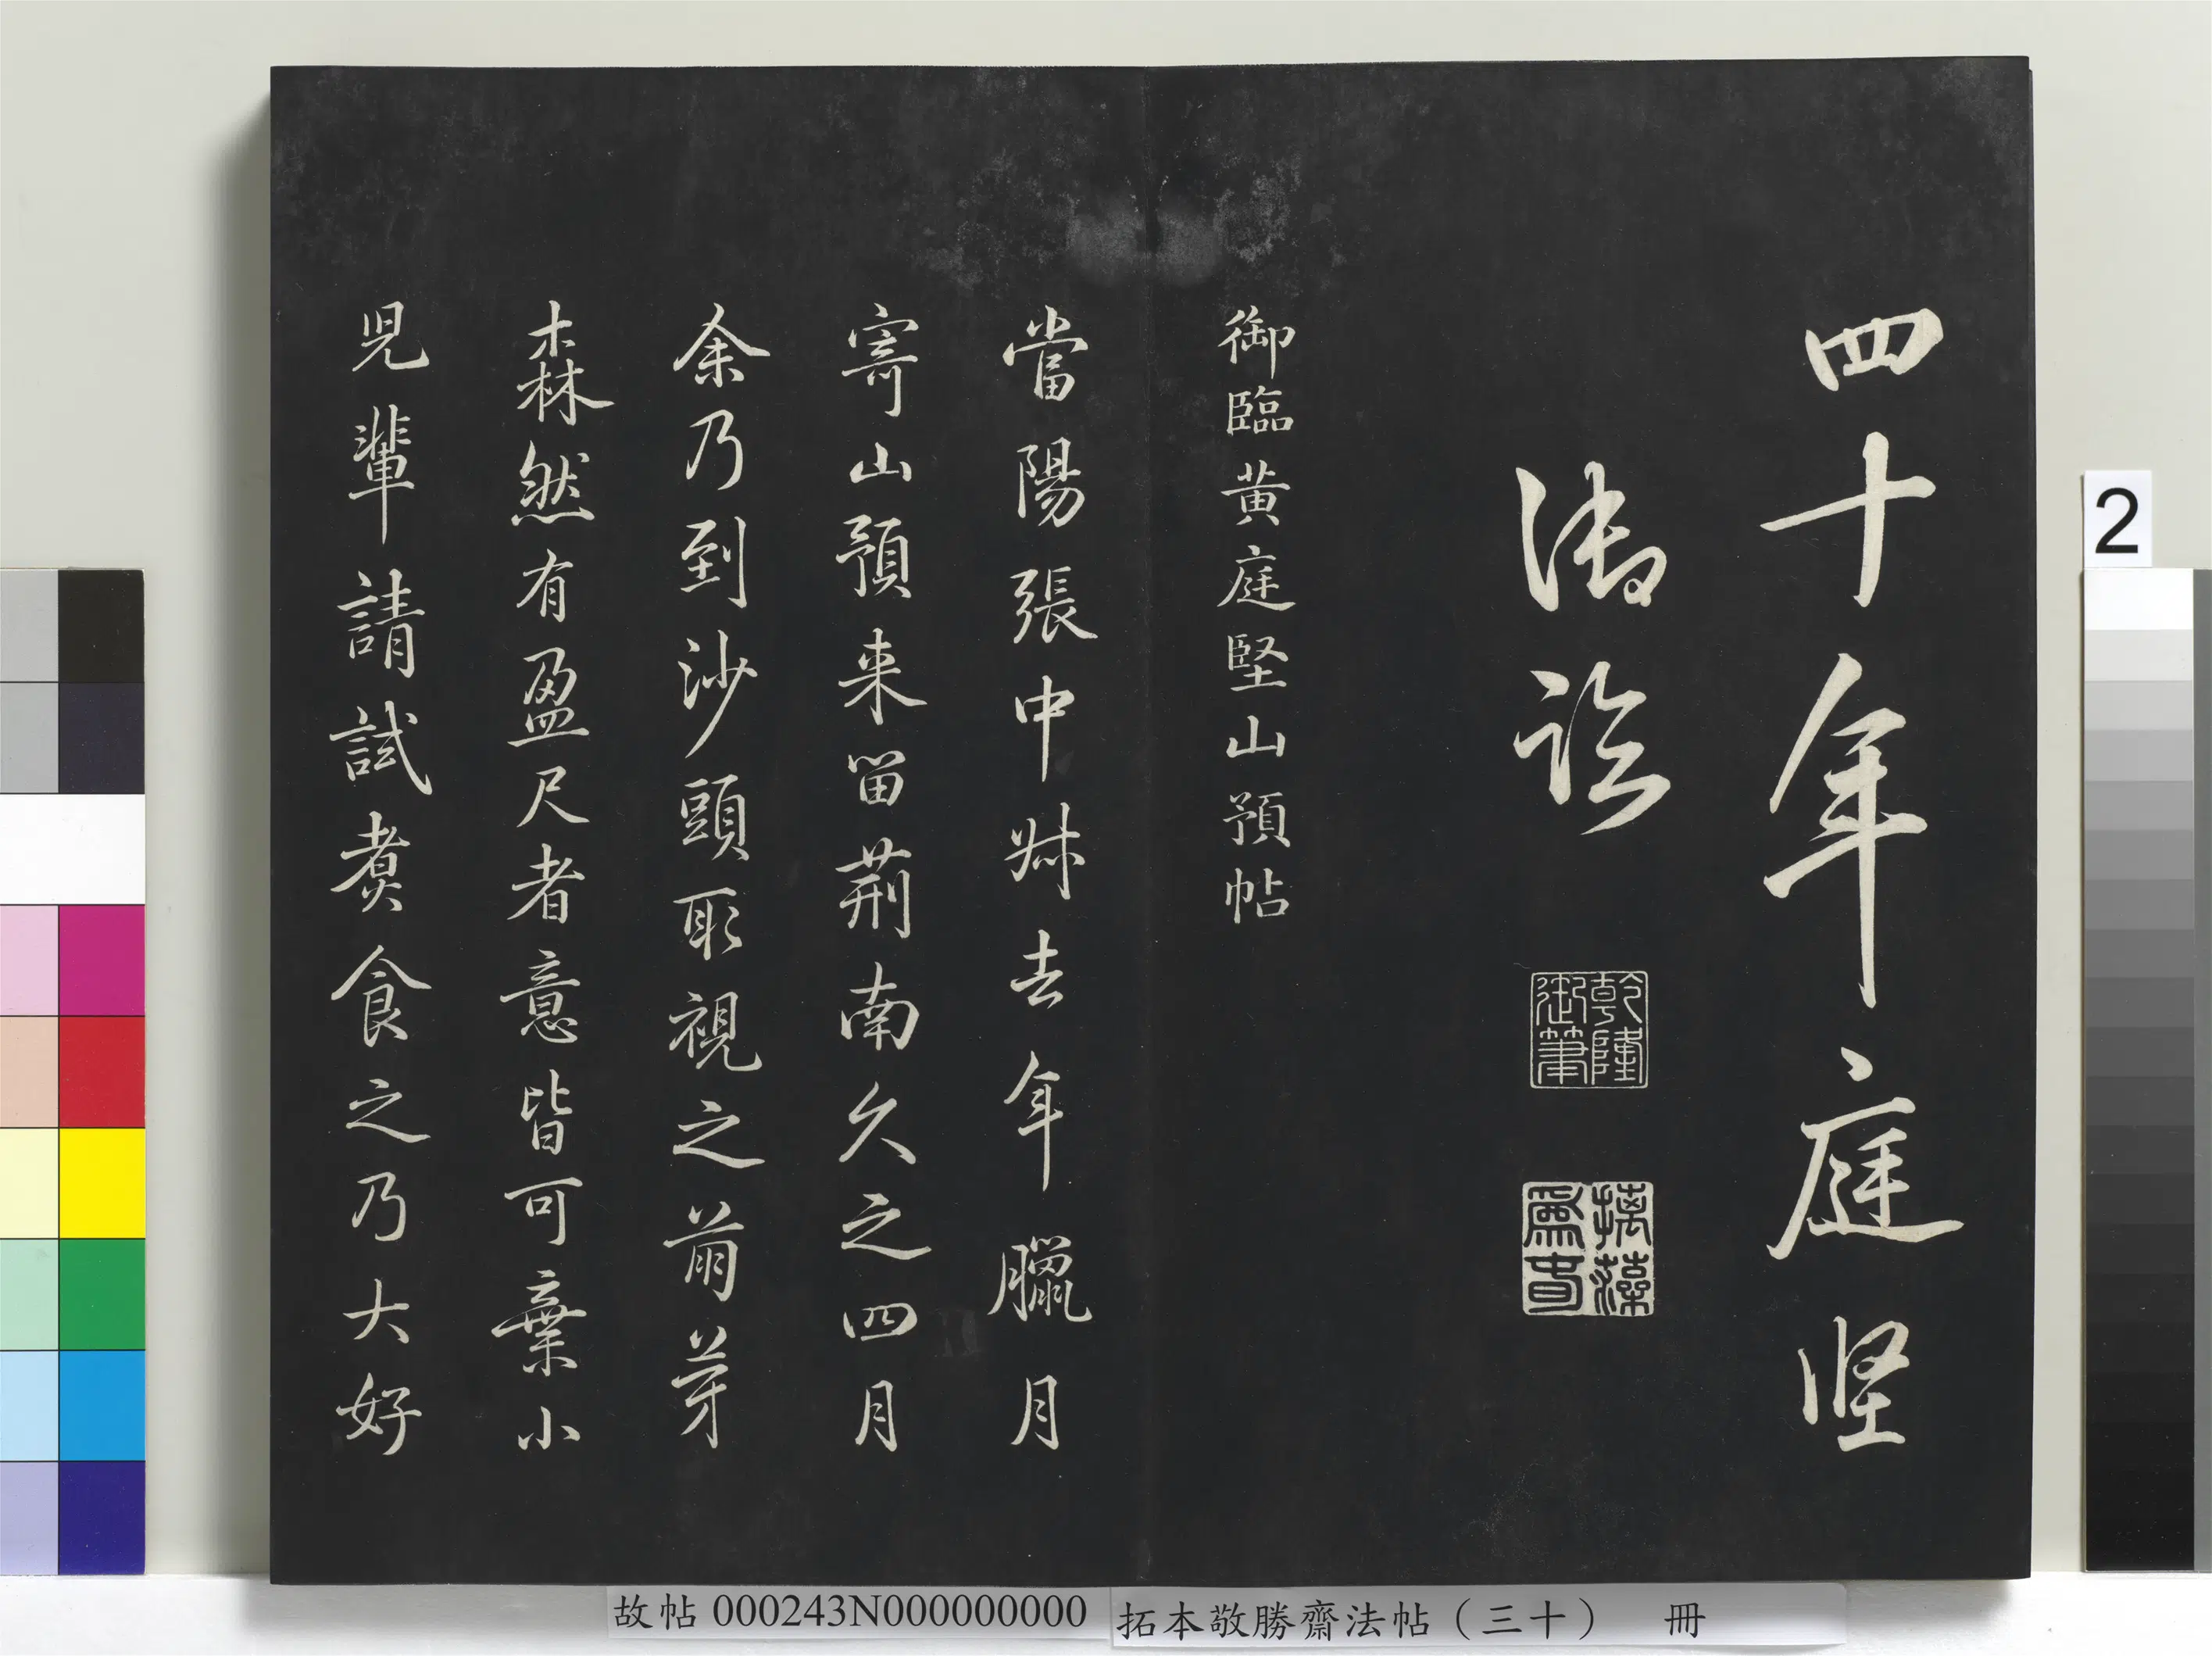 四十年庭堅
御臨
乾隆御筆
摛藻為春
御臨黃庭堅山預帖
當陽張中叔去年臘月
寄山預來留荊南久之四月
余乃到沙頭取視之萠芽
森然有盈尺者意皆可棄小
兒輩請試煮食之乃大好
2
故帖 000243N000000000
拓本敬勝齋法帖（三十） 冊